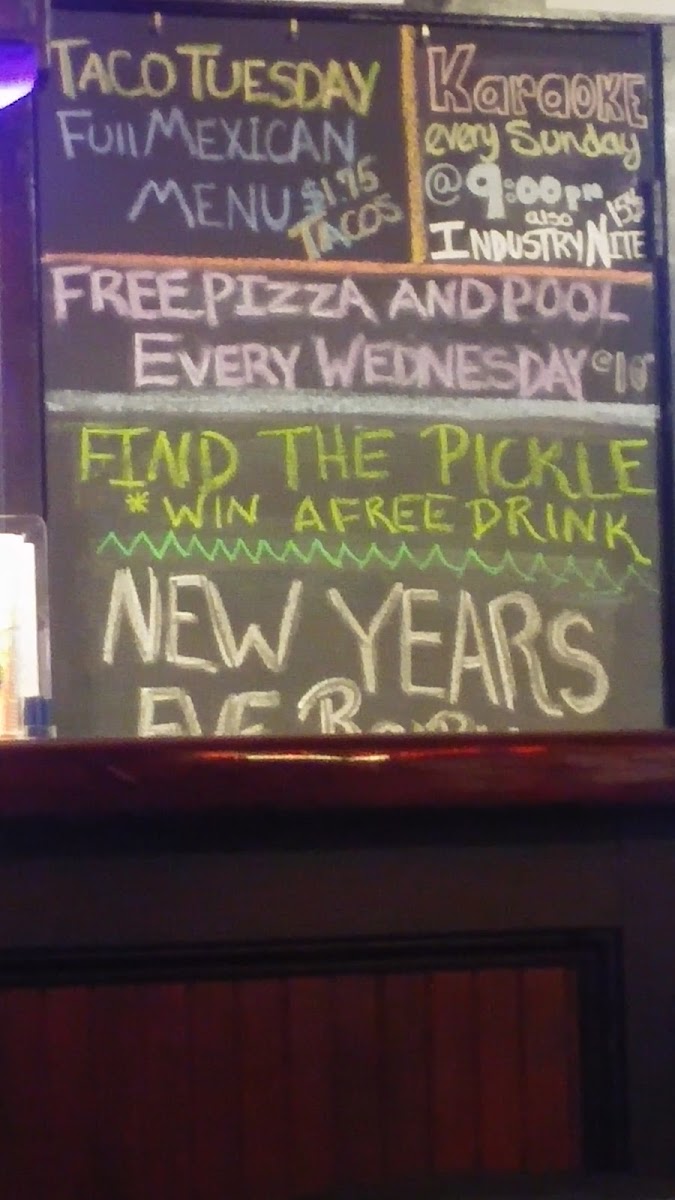 TACO TUESDAY
Full MEXICAN
MENU $1.75
TACOS
KaraOKE
every Sunday
@ 9:00pm
also
INDUSTRY NITE
FREE PIZZA AND POOL
EVERY WEDNESDAY @10
FIND THE PICKLE
* WIN A FREE DRINK
NEW YEARS
EVE